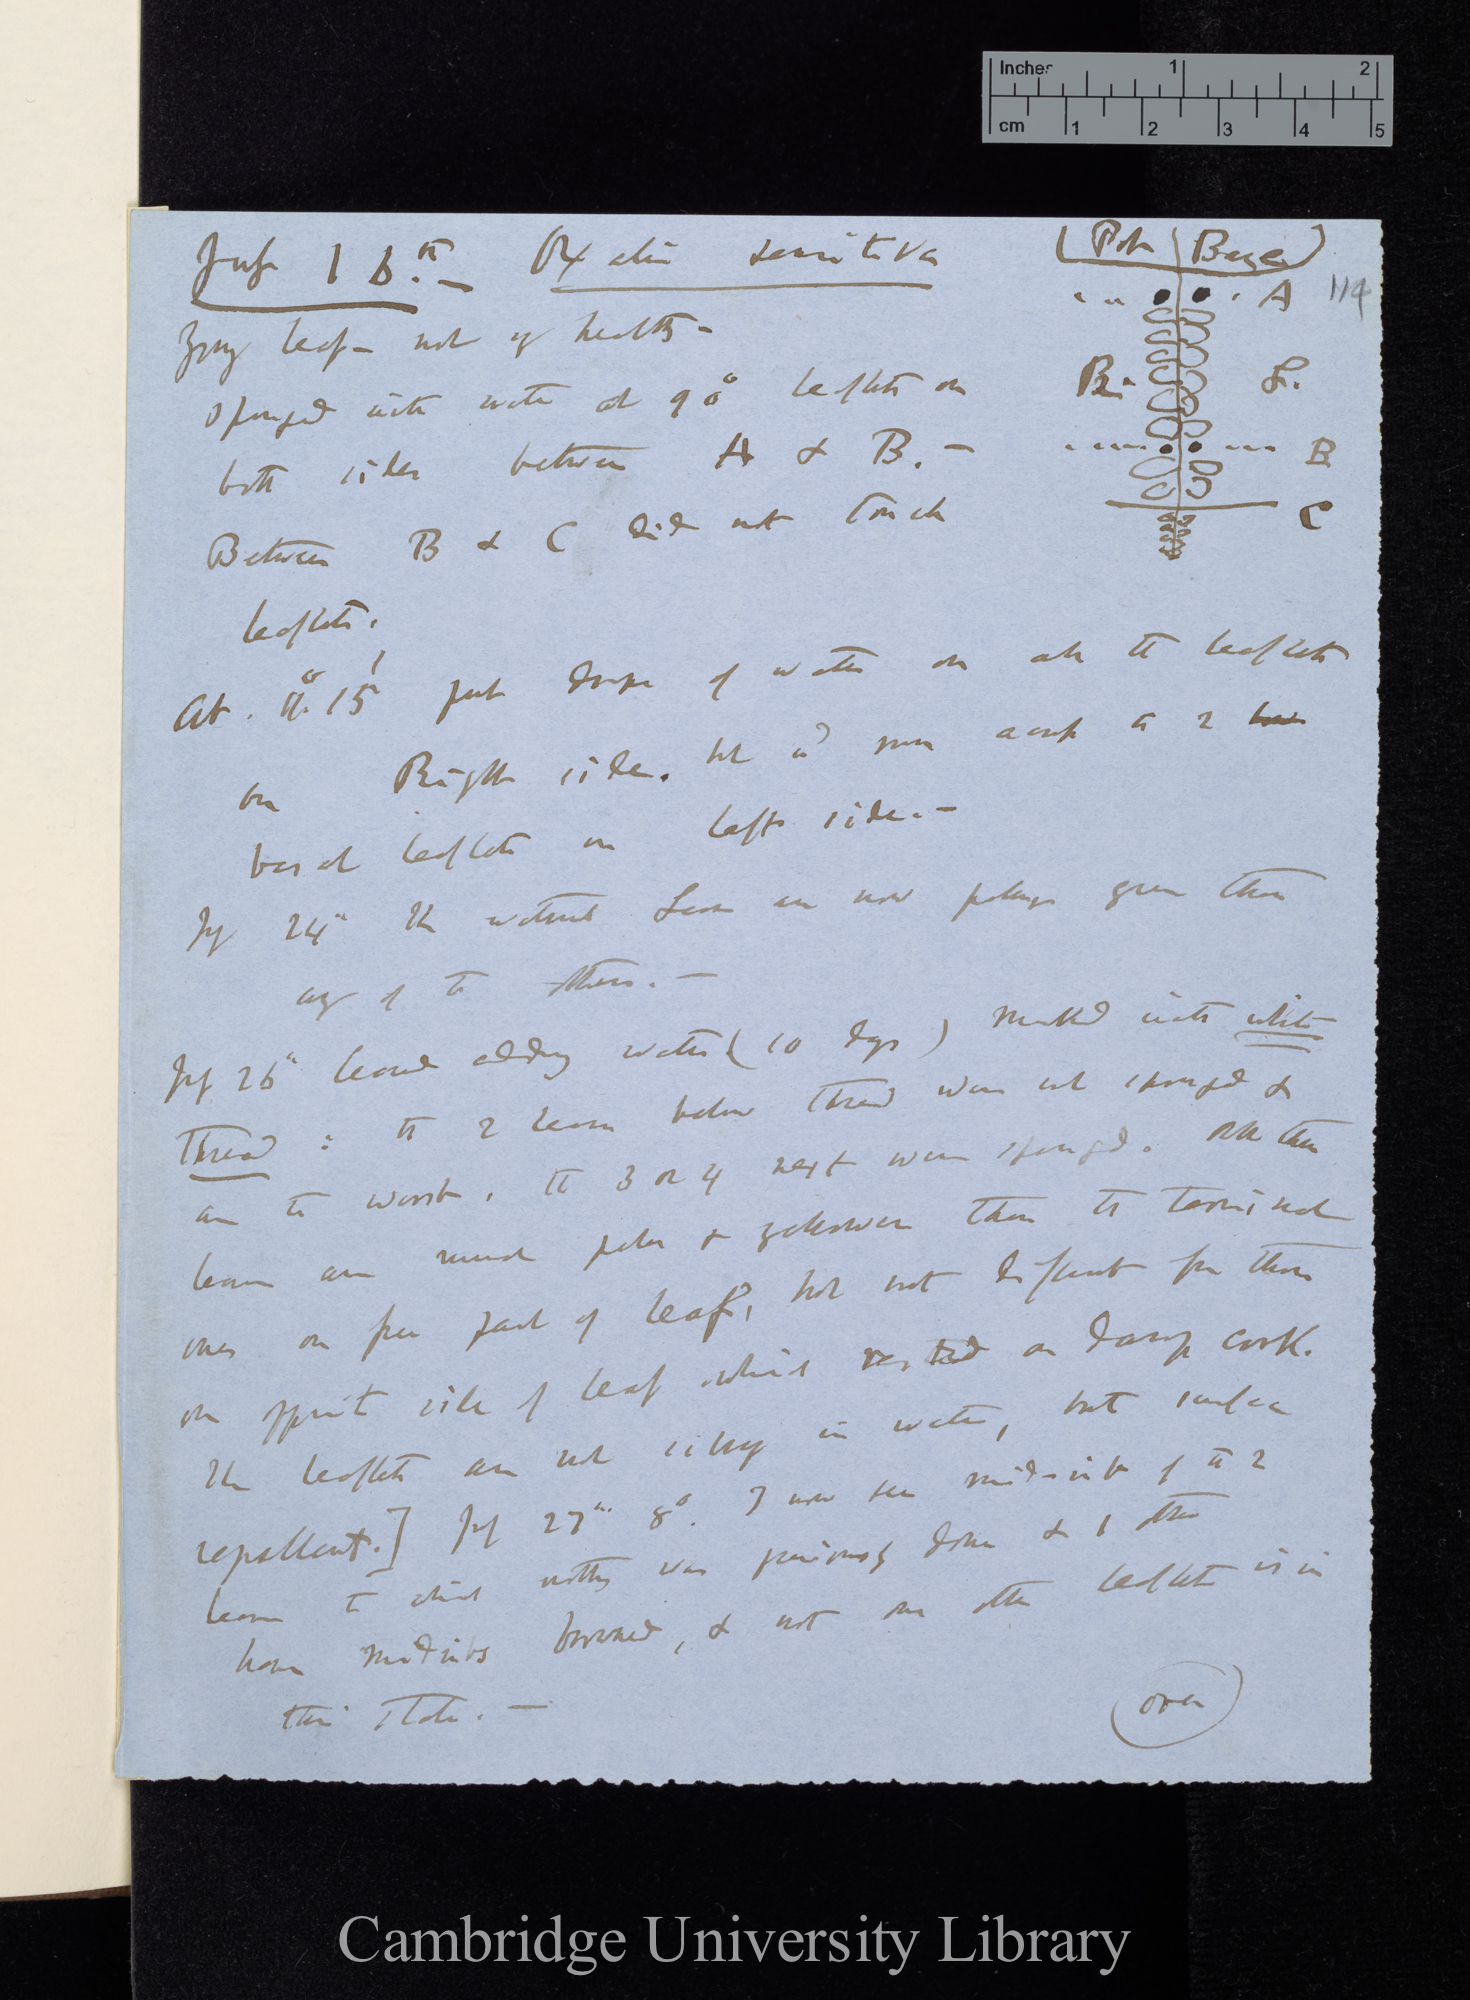 Inches 1 2
cm 1 2 3 4 5
July 16.th— Oxalis sensitiva
(Pot | Base)
A 114
Young leaf— not of health—
sponged with water at 98° leaflets on
R. L.
both sides between A & B.—
B
Between B & C did not touch
C
leaflets.
At. 11°. 15' put drops of water on all the leaflets
on Right side. but it run across to 2
basal leaflets on left side.—
July 24th The watered leaves are now perhaps greener than
any of the others.—
July 26th leave adding water (10 days) marked with white
thread : the 2 leaves below thread were not sponged &
are the worst. the 3 or 4 next were sponged. All these
leaves are much paler & yellower than the terminal
ones on free part of leaf, but not different from those
on opposite side of leaf which rested on damp cork.
The leaflets are not silvery in water, but surface
repellent.] July 27th 8°. I now see mid-ribs of the 2
leaves to which nothing was previously done & 1 other
have midribs browned, & not one other leaflet is in
this state.—
(over)
Cambridge University Library